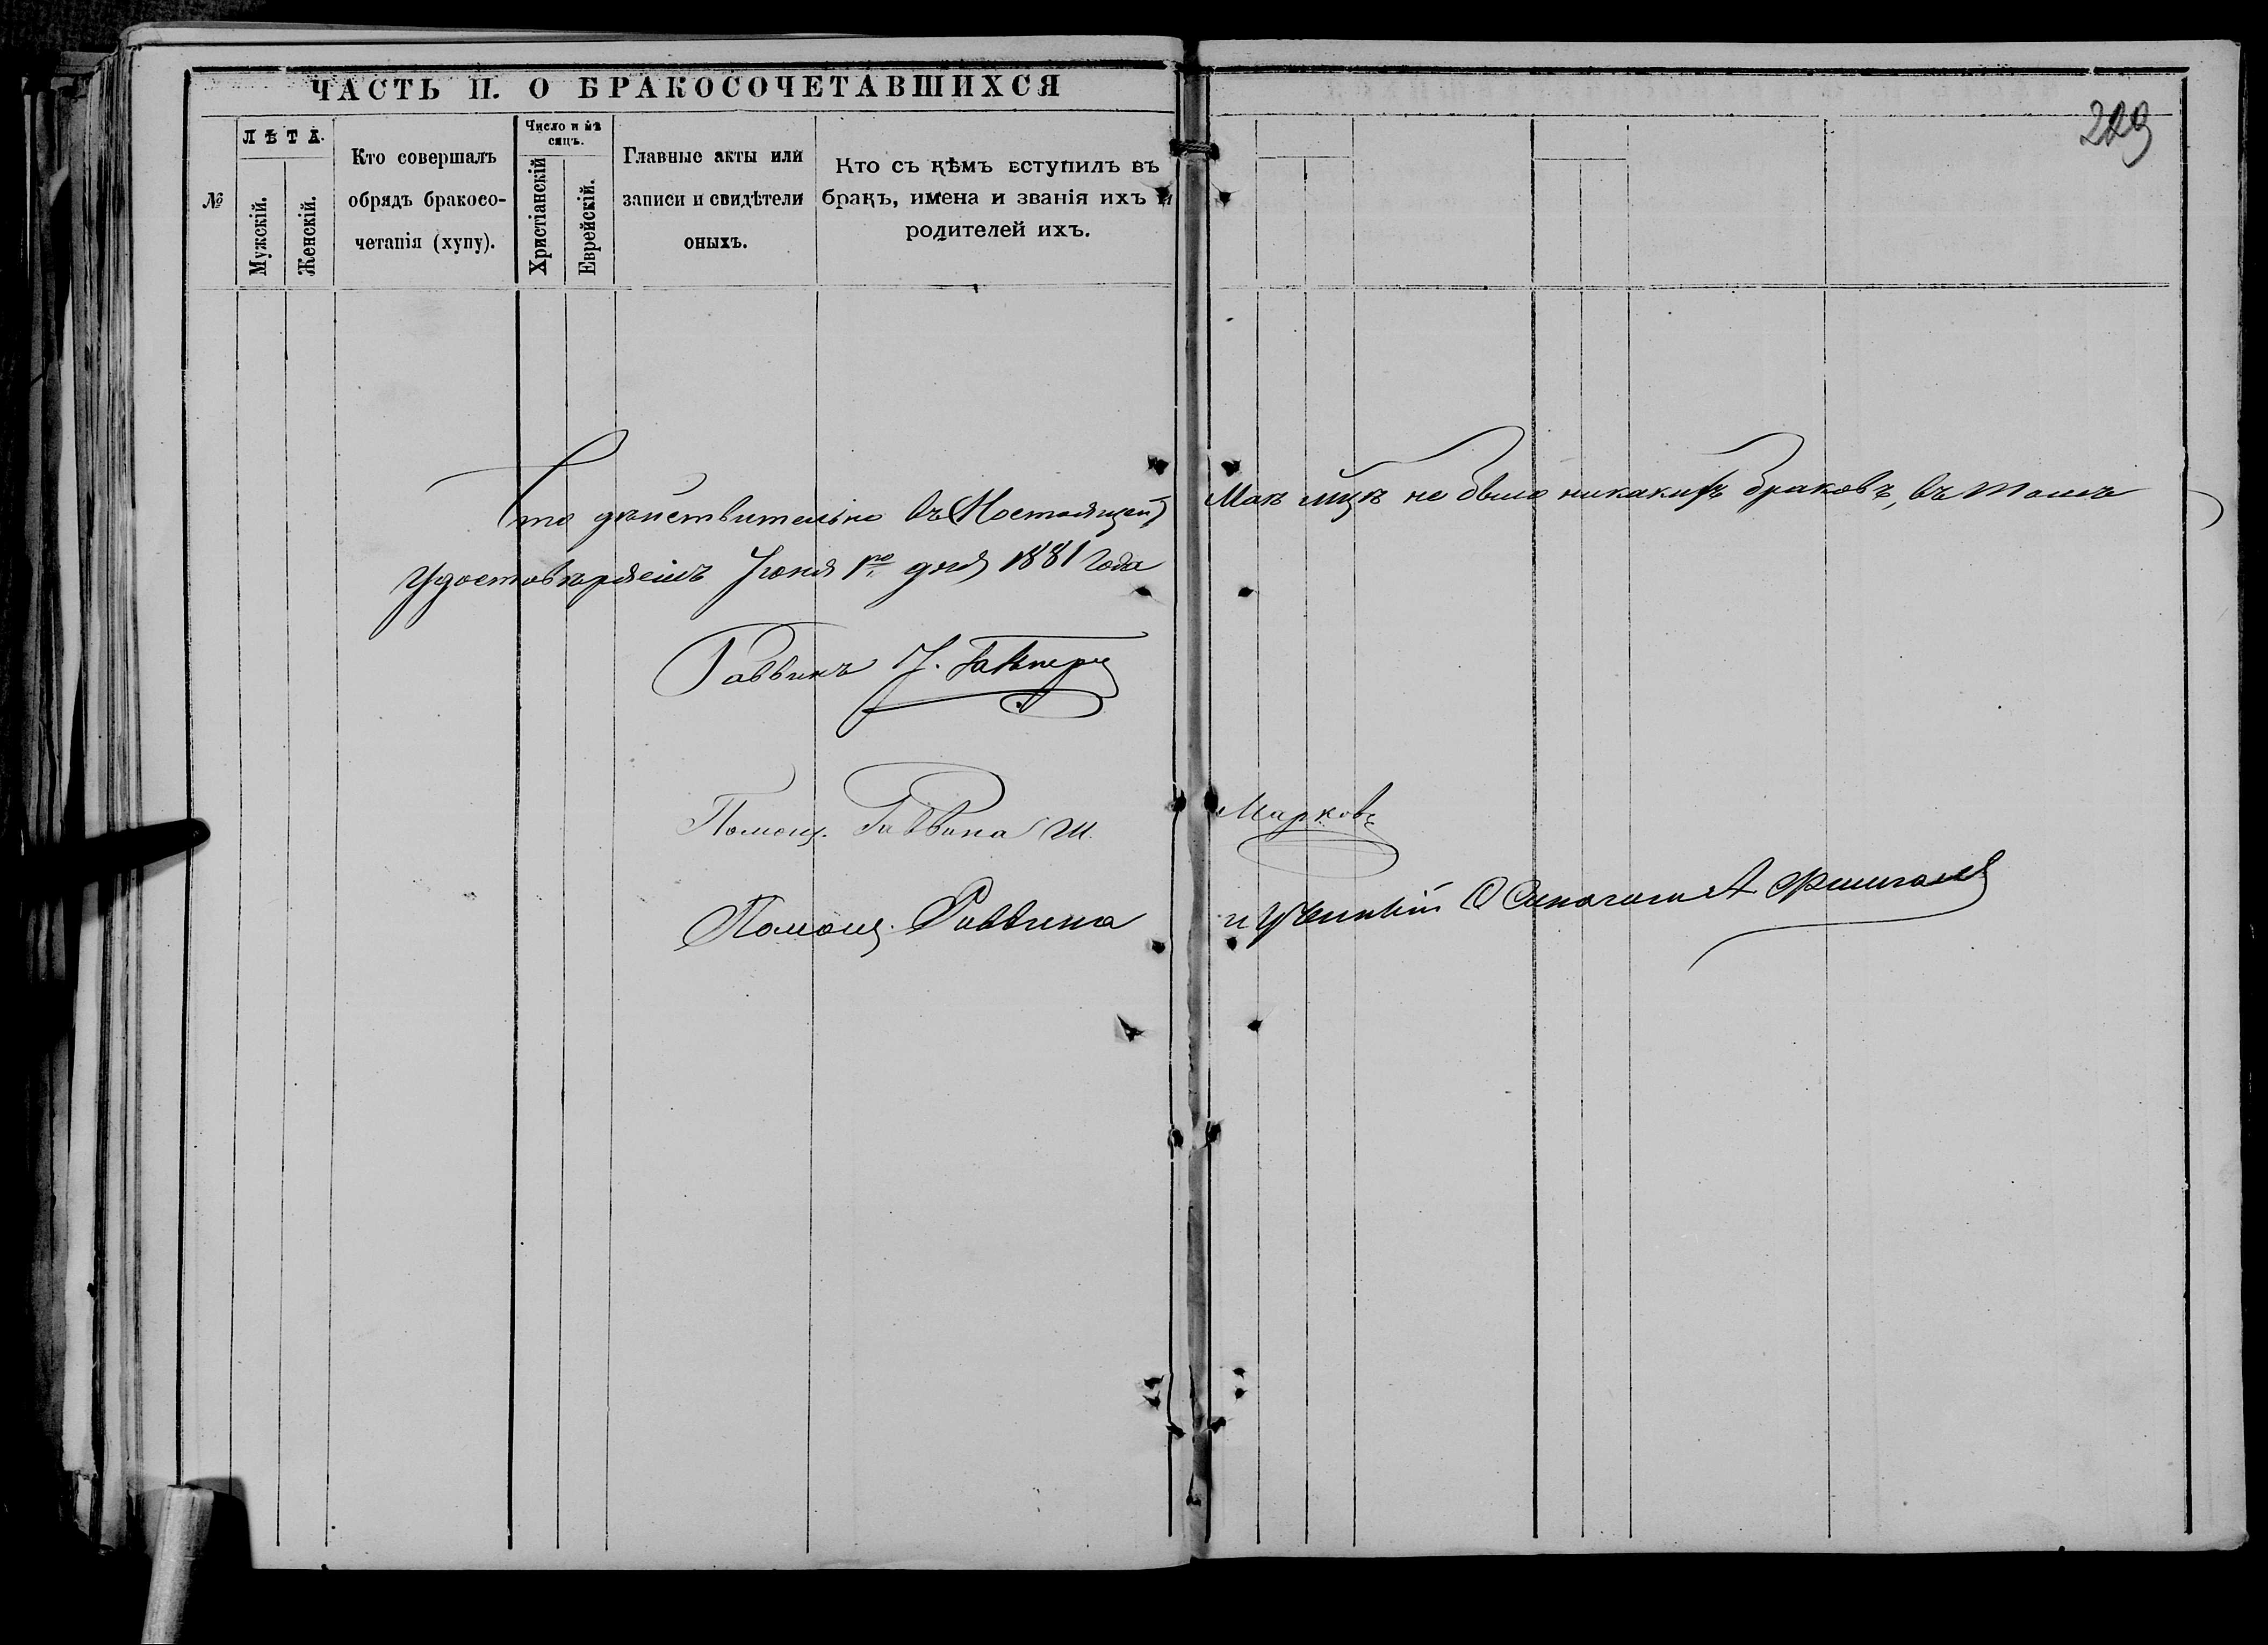 ЧАСТЬ II. О БРАКОСОЧЕТАВШИХСЯ
229
№
ЛѢТА.
Мужскій.
Женскій.
Кто совершалъ
обрядъ бракосо-
четанія (хупу).
Число и мѣ
сяцъ.
Христіанскій
Еврейскій.
Главные акты или
записи и свидѣтели
оныхъ.
Кто съ кѣмъ вступилъ въ
бракъ, имена и званія ихъ и
родителей ихъ.
Что дѣйствительно въ Настоящей Маѣ мцѣ не было никакихъ браковъ, въ томъ
Удостовѣряемъ Іюня 1го дня 1881 года
Раввинъ
Помощ. Раввина Ш. Марковъ
Помощ. Раввина и